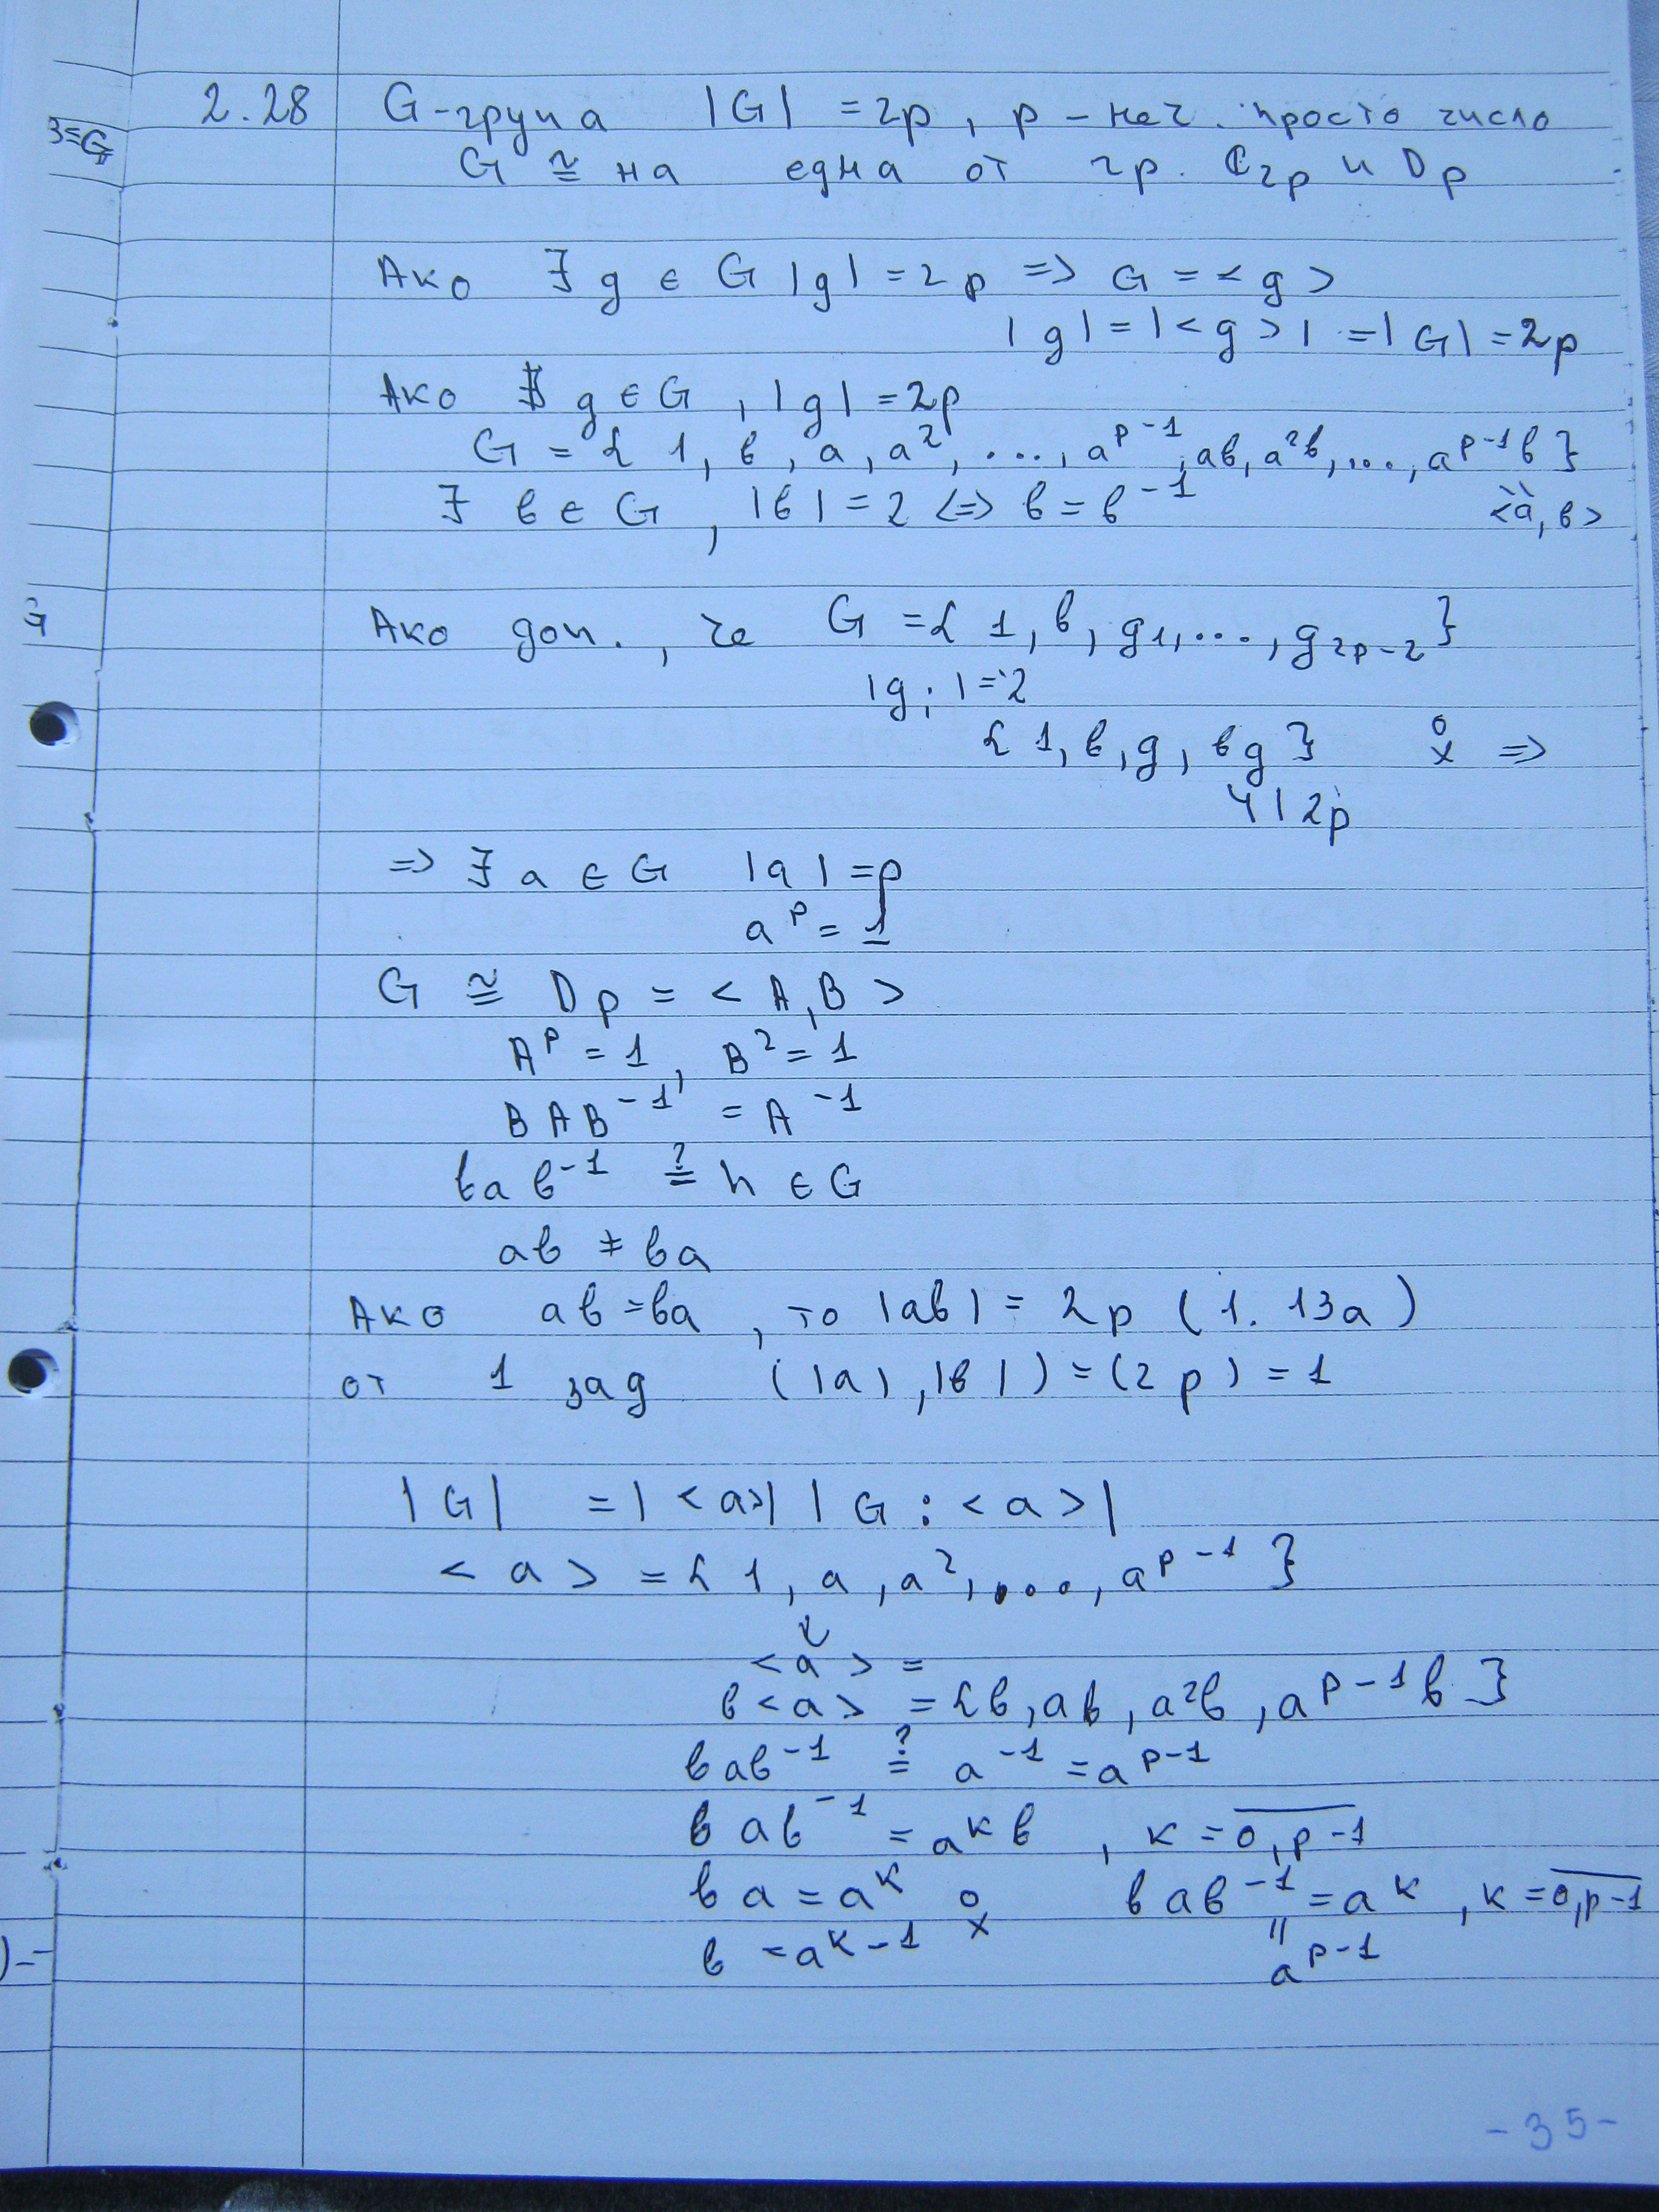 2.28 G-група |G| = 2p, p - неч. просто число
3=G
G ≅ на една от гр. C2p и Dp
Ако ∃ g ∈ G |g| = 2p => G = <g>
|g| = |<g>| = |G| = 2p
Ако ∄ g ∈ G, |g| = 2p
G = { 1, в, a, a², ..., a^{p-1}, aв, a²в, ..., a^{p-1}в }
∃ в ∈ G, |в| = 2 <=> в = в^{-1} <a, в>
Ако доп., че G = { 1, в, g1, ..., g2p-2 }
|gi| = 2
{ 1, в, g, вg } =>
4 | 2p
=> ∃ a ∈ G |a| = p
a^p = 1
G ≅ Dp = < A, B >
A^p = 1, B² = 1
BAB^{-1} = A^{-1}
вaв^{-1} ≟ h ∈ G
aв ≠ вa
Ако aв = вa, то |aв| = 2p (1.13a)
от 1 зад (|a|, |в|) = (2 p) = 1
|G| = |<a>| |G : <a>|
<a> = { 1, a, a², ..., a^{p-1} }
<a> =
в<a> = {в, aв, a²в, a^{p-1}в }
вaв^{-1} ≟ a^{-1} = a^{p-1}
вaв^{-1} = a^к в, к = 0,p-1
вa = a^к вaв^{-1} = a^к, к = 0,p-1
в = a^{к-1} a^{p-1}
-35-